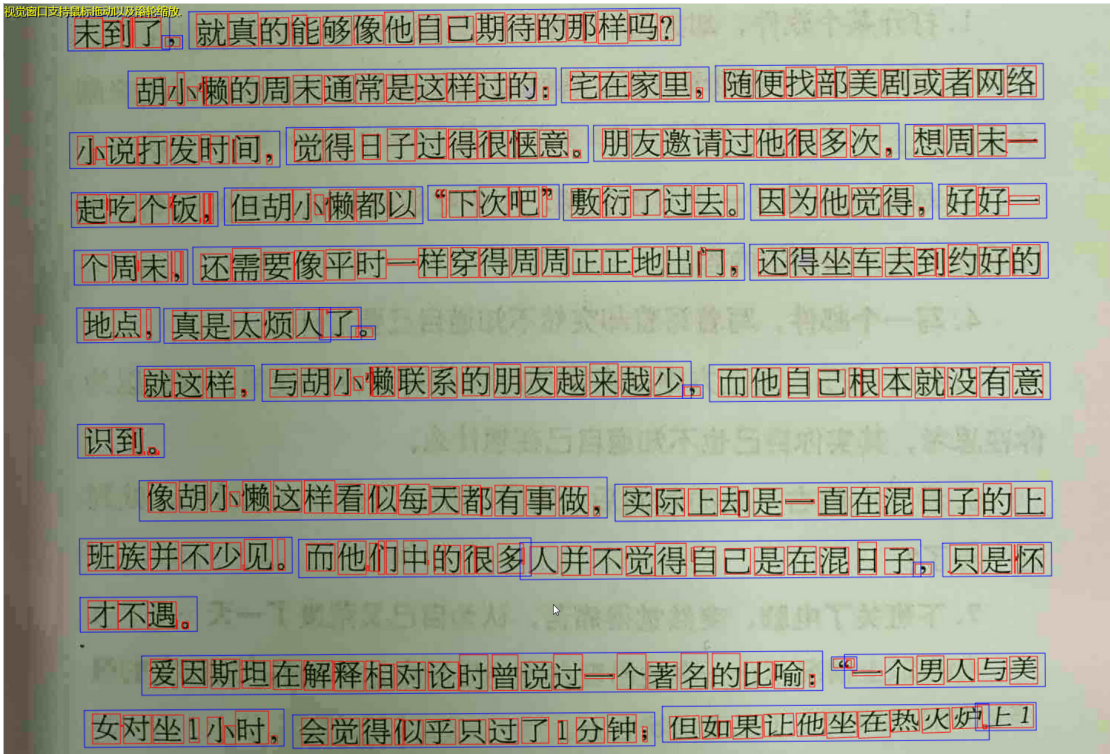 视觉窗口支持鼠标拖动以及滚轮缩放.
末到了，就真的能够像他自己期待的那样吗？
胡小懒的周末通常是这样过的：宅在家里，随便找部美剧或者网络
小说打发时间，觉得日子过得很惬意。朋友邀请过他很多次，想周末一
起吃个饭，但胡小懒都以“下次吧”敷衍了过去。因为他觉得，好好一
个周末，还需要像平时一样穿得周周正正地出门，还得坐车去到约好的
地点，真是太烦人了。
就这样，与胡小懒联系的朋友越来越少，而他自己根本就没有意
识到。
像胡小懒这样看似每天都有事做，实际上却是一直在混日子的上
班族并不少见。而他们中的很多人并不觉得自己是在混日子，只是怀
才不遇。
爱因斯坦在解释相对论时曾说过一个著名的比喻：“一个男人与美
女对坐1小时，会觉得似乎只过了1分钟；但如果让他坐在热火炉上1